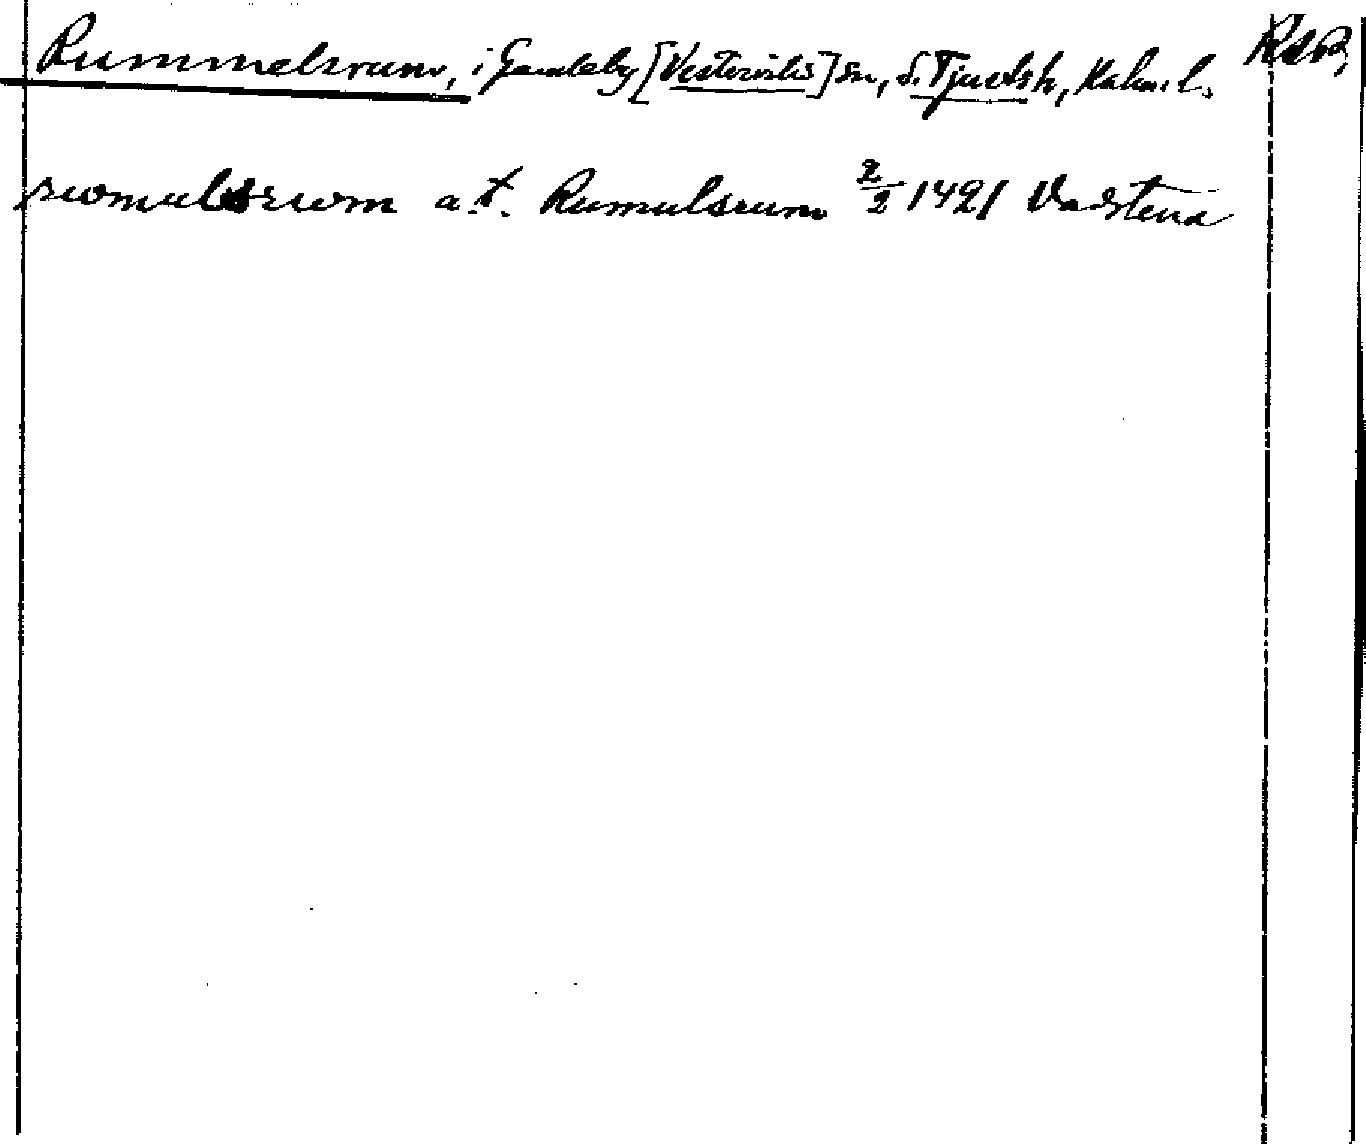 Rummelsrum, i Gamleby [Vesterviks] sn, S. Tjustsh, Kalm. l.
rwmulsrwm a.t. Rumulsrum 2/2 1421 Vadstena